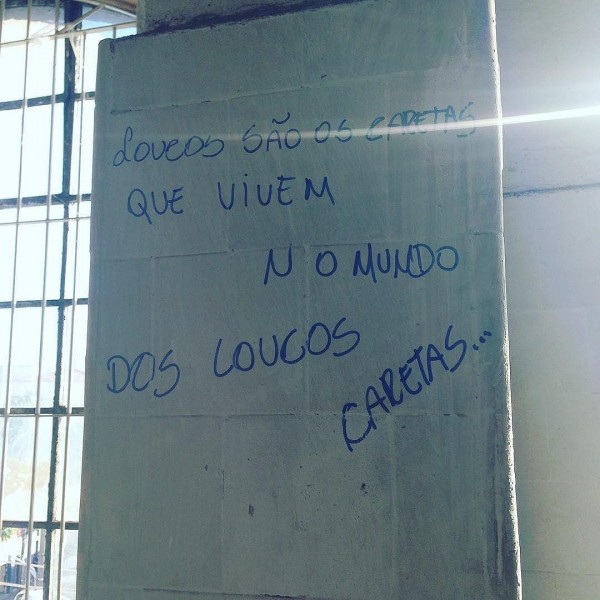 LOUCOS SÃO OS CARETAS
QUE VIVEM
NO MUNDO
DOS LOUCOS
CARETAS...